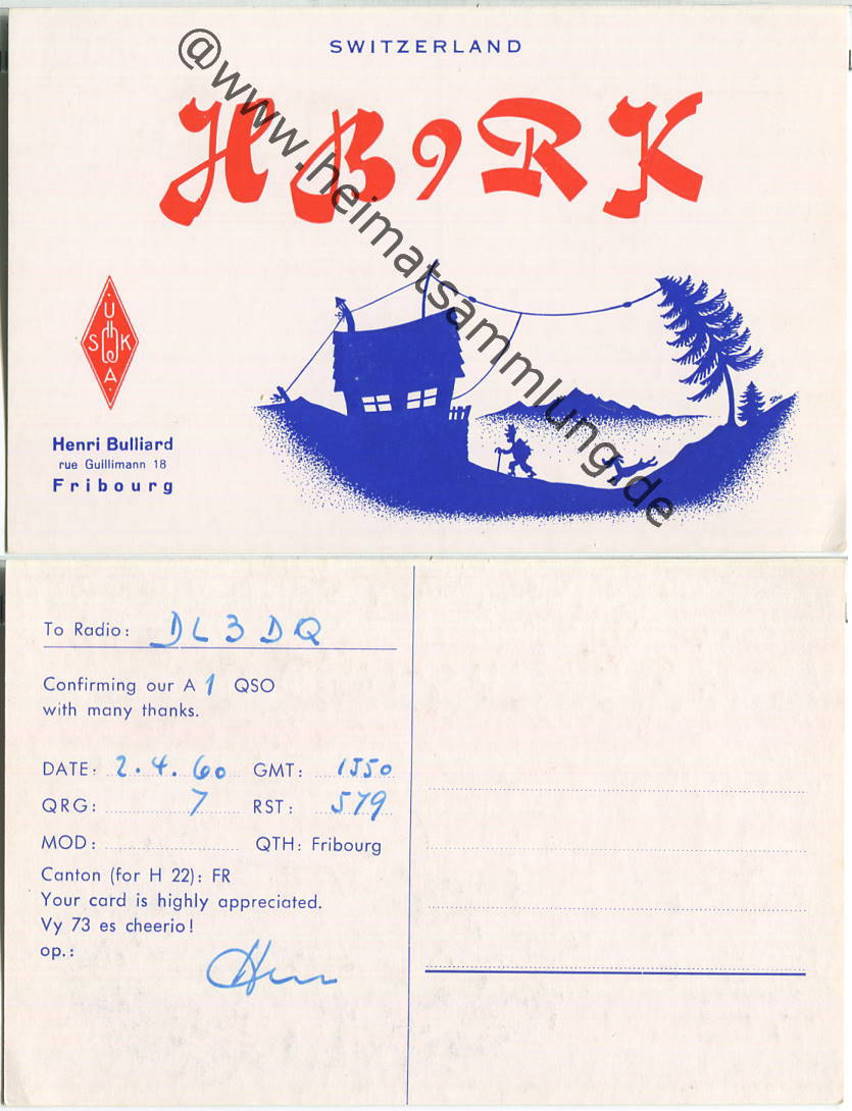 SWITZERLAND
HB9RK
@www.heimatsammlung.de
U
S K
A
Henri Bulliard
rue Guillimann 18
Fribourg
To Radio: DL3DQ
Confirming our A 1 QSO
with many thanks.
DATE: 2.4.60 GMT: 1550
QRG: 7 RST: 579
MOD: QTH: Fribourg
Canton (for H 22): FR
Your card is highly appreciated.
Vy 73 es cheerio!
op.: